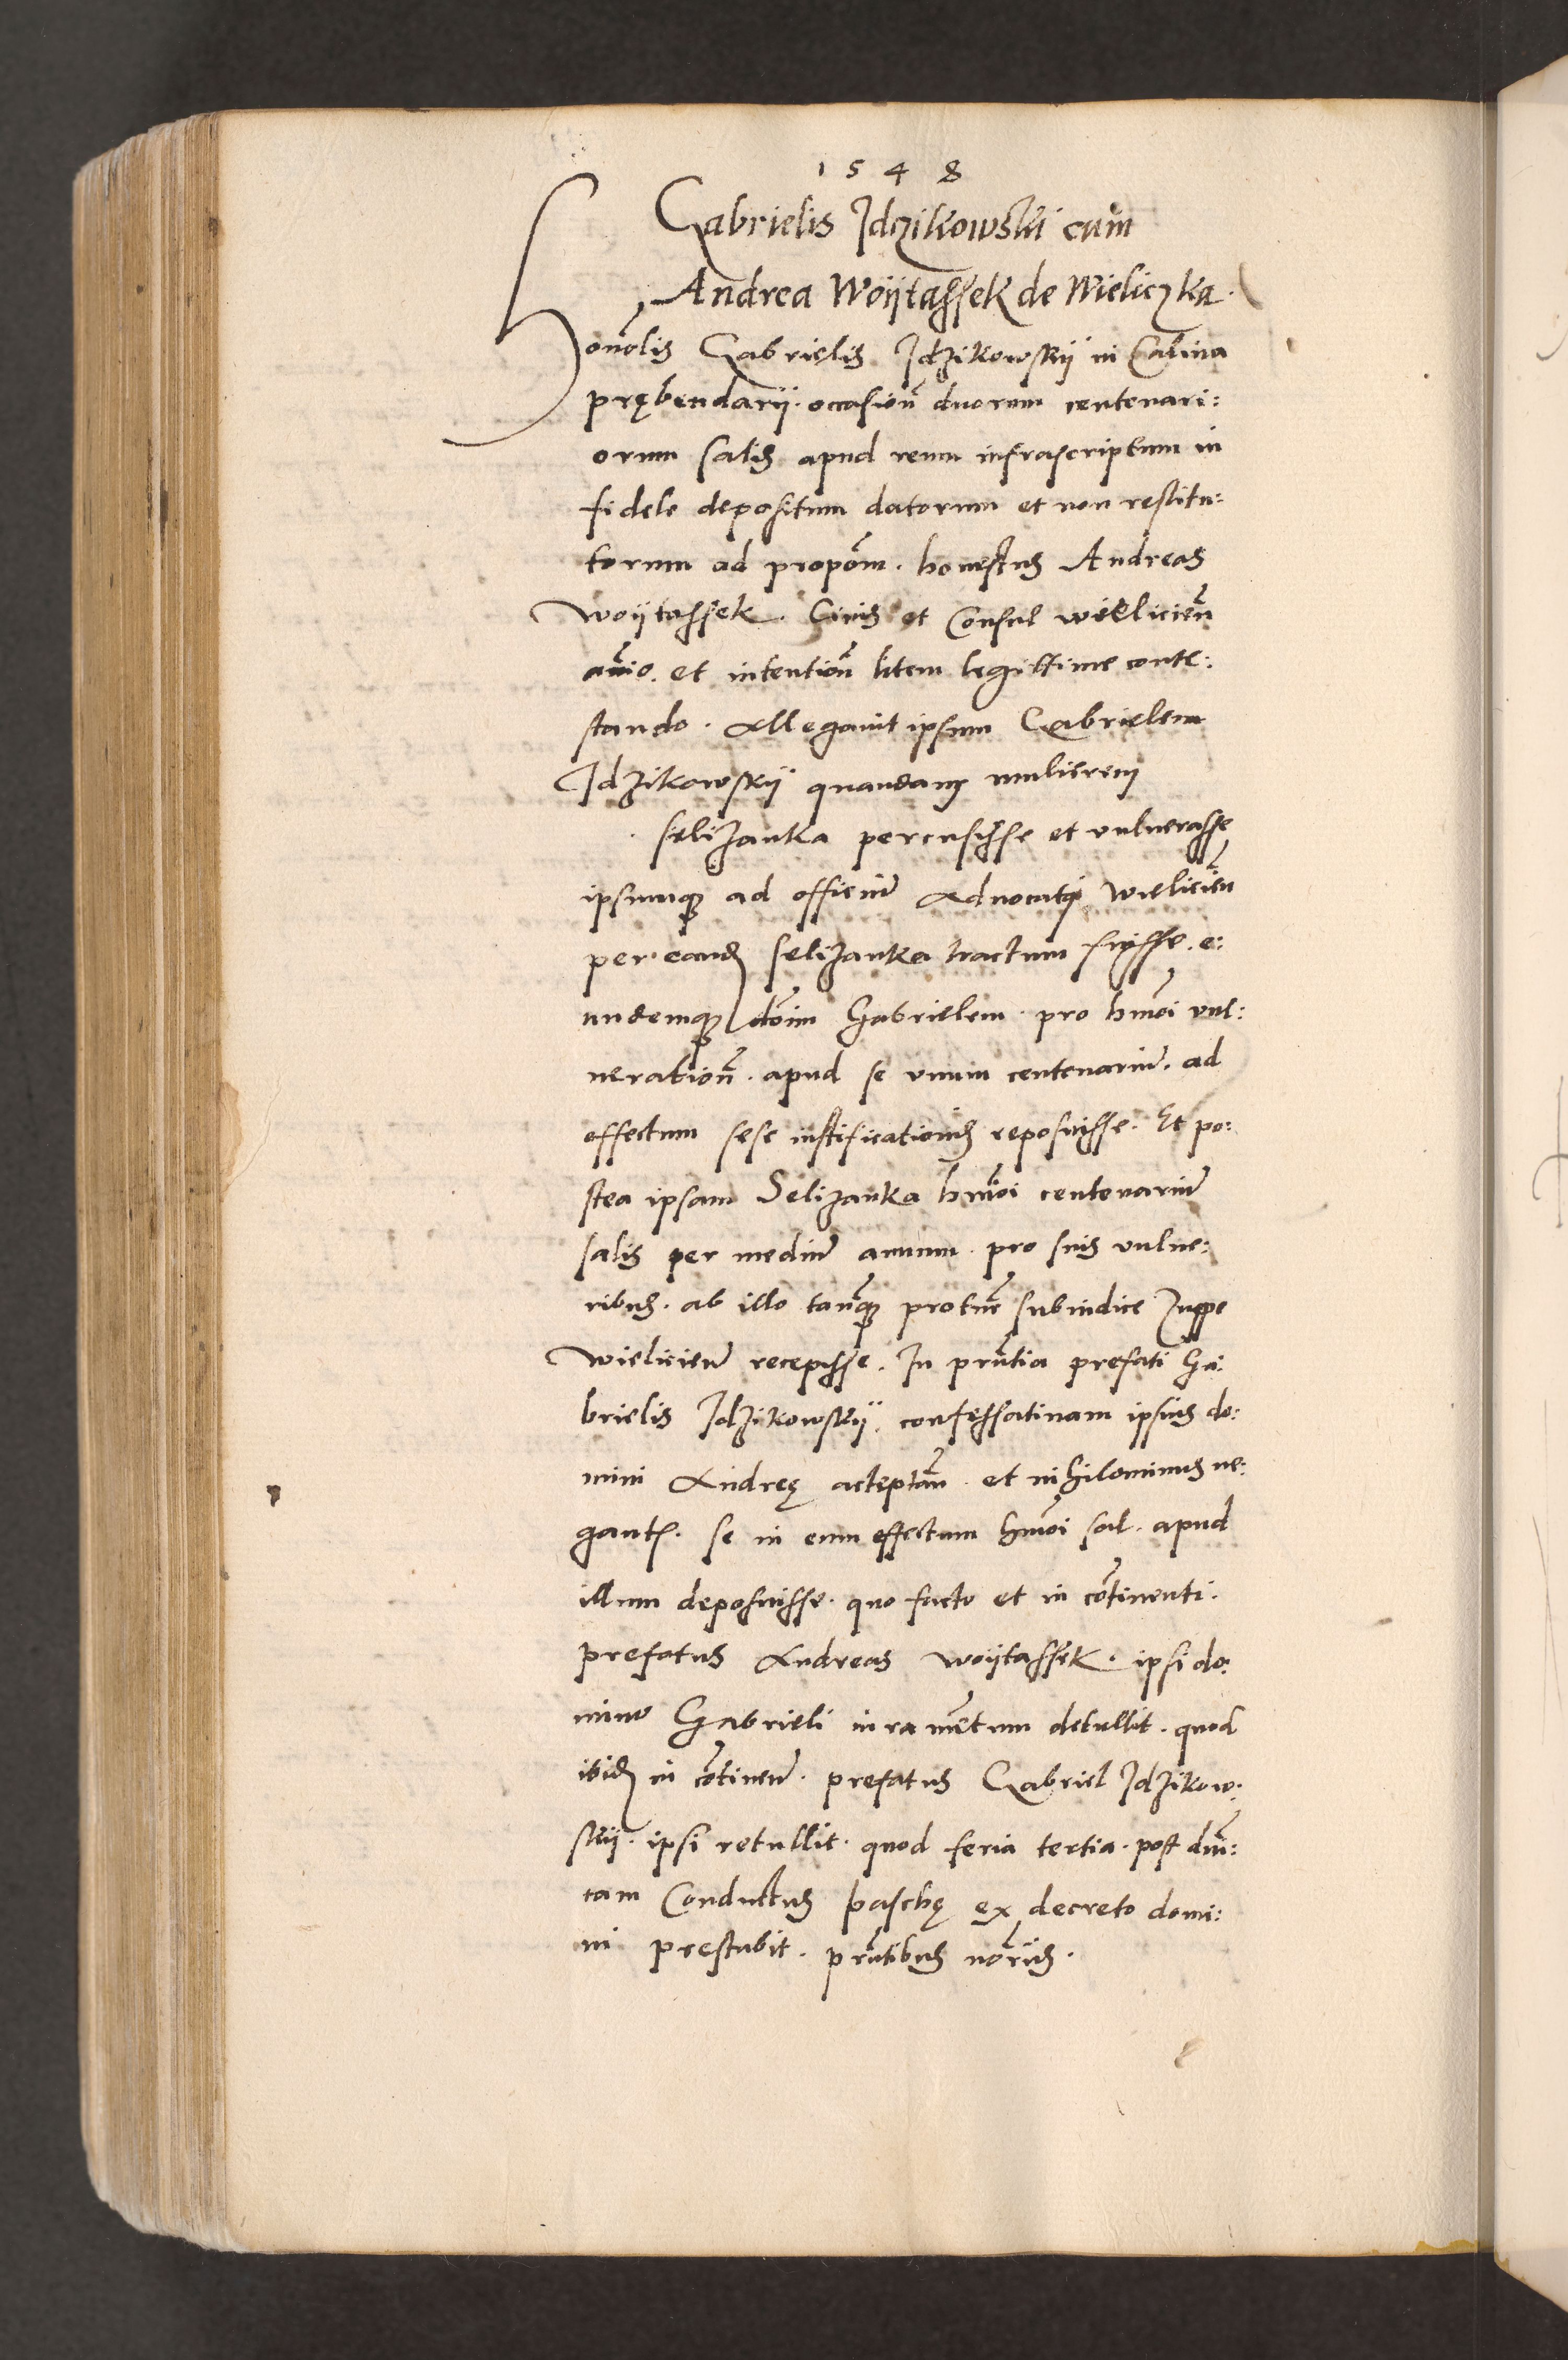 1548
Gabrielis Idzikowski cum
Andrea Woijtassek de Wieliczka.
Honolis Gabrielis Idzikowskij in Calina
prębendarij. occasion duorum centenari:
orum salis apud reum infrascriptum in
fidele depositum datorum et non restitu:
torum ad propom. honestus Andreas
Woijtassek. Civis et Consul wieliciem
et intention litem legittime conte:
stando. Allegavit ipsum Gabrielem
Idzikowskij quandam mulierem
selizanka percussisse et vulnerasse
ipsumq ad officiu Advocati wielicien
per eand selizanka tractum fuisse. e:
undemq dom Gabrielem. pro hmoi vul:
neration. apud se unum centenariu. ad
effectum sese iustificationis reposuisse. Et po:
stea ipsam Selizanka hmoi centenariu
salis per mediu annum. pro suis vulne:
ribus. ab illo tanq protunc subiudice Zuppe
wielicien recepisse. In pruntia prefati Ga:
brielis Idzikowskij. confessatinam ipsius do:
mini Andreę acceptan. et nihilominus ne:
gant. se in eum effectum hmoi sal. apud
illum deposuisse. quo facto et in continenti.
prefatus Andreas Woijtassek. ipsi do:
mino Gabrieli iuramentum detullit. quod
ibid in continen. prefatus Gabriel Idzikow:
skij. ipsi retullit. quod feria tertia. post dni:
cam Conductus paschę ex decreto domi:
ni prestabit. pruntibus noriis.